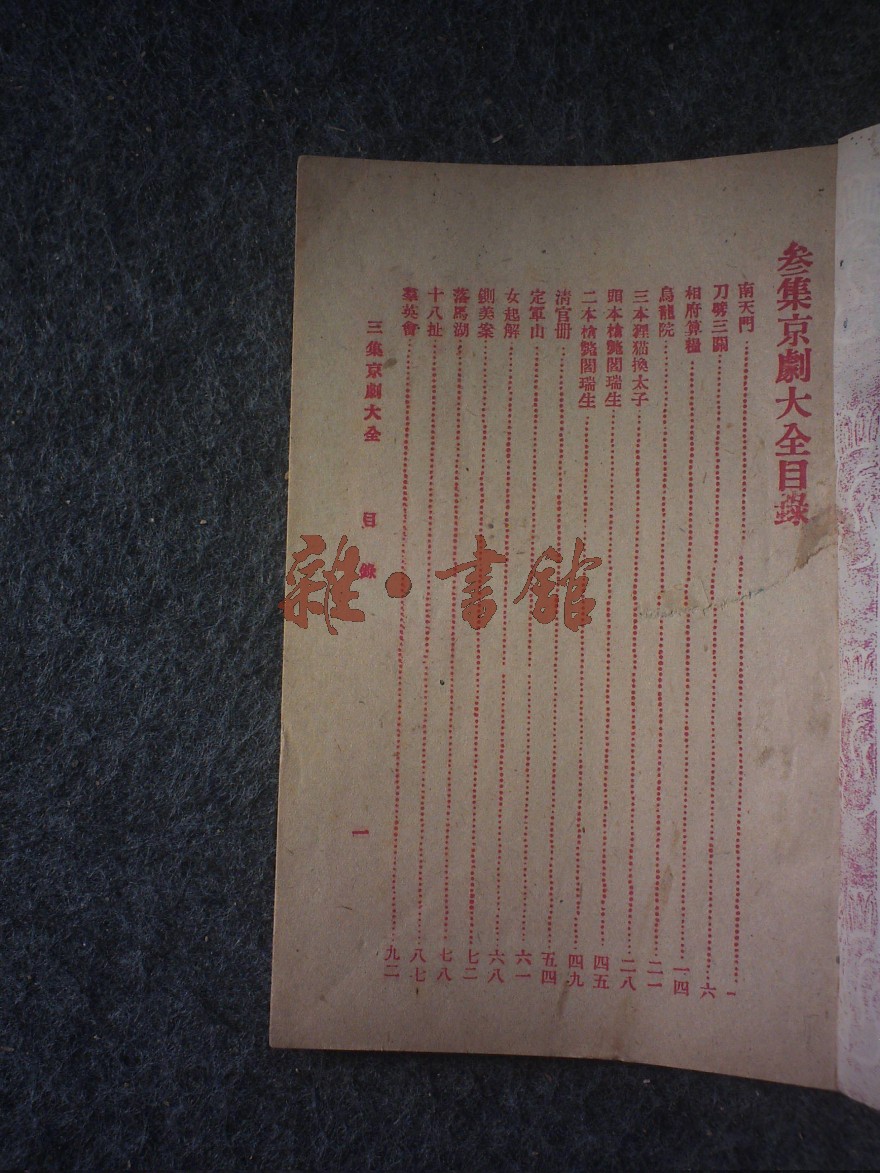 叄集京劇大全目錄
南天門……一
刀劈三關……六
相府算糧……一四
烏龍院……二一
三本狸猫換太子……二八
頭本槍斃閻瑞生……四五
二本槍斃閻瑞生……四九
清官册……五四
定軍山……六一
女起解……六八
鍘美案……七二
落馬湖……七八
十八扯……八七
羣英會……九二
三集京劇大全 目錄 一
雜·書館